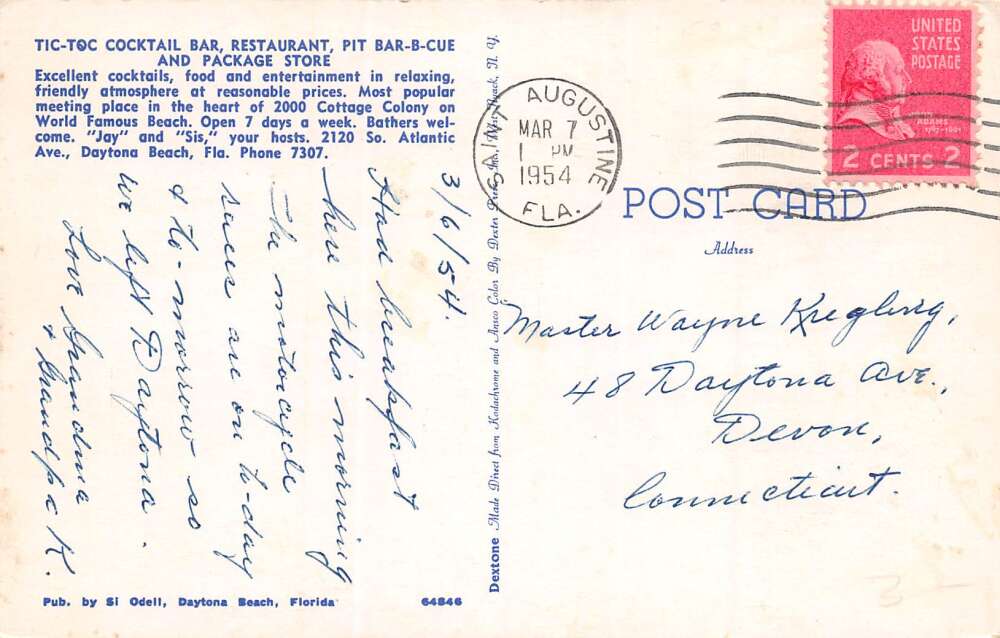 TIC-TOC COCKTAIL BAR, RESTAURANT, PIT BAR-B-CUE
AND PACKAGE STORE
Excellent cocktails, food and entertainment in relaxing,
friendly atmosphere at reasonable prices. Most popular
meeting place in the heart of 2000 Cottage Colony on
World Famous Beach. Open 7 days a week. Bathers wel-
come. "Jay" and "Sis," your hosts. 2120 So. Atlantic
Ave., Daytona Beach, Fla. Phone 7307.
3/6/54.
Had breakfast
here this morning
The motocycle
races are on to-day
& to-morrow so
we left Daytona.
Love Grandma
& Grandpa K.
Pub. by Si Odell, Daytona Beach, Florida
64846
Dextone Made Direct from Kodachrome and Ansco Color By Dexter Nyack, N. Y.
SAINT AUGUSTINE
MAR 7
1 PM
1954
FLA.
UNITED
STATES
POSTAGE
ADAMS
2 CENTS 2
POST CARD
Address
Master Wayne Kregling,
48 Daytona Ave.,
Devon,
Connecticut.
3-